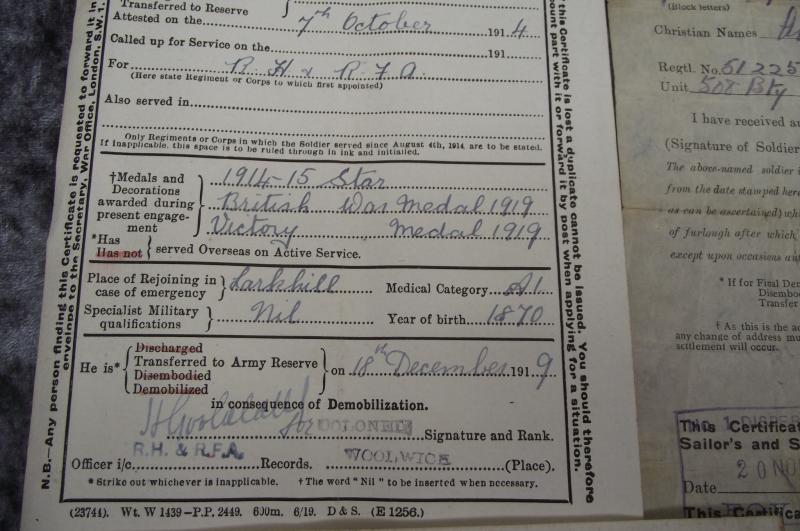 Transferred to Reserve
Attested on the 7th October 1914
Called up for Service on the 191
For R. H & R. F. A.
(Here state Regiment or Corps to which first appointed)
Also served in
Only Regiments or Corps in which the Soldier served since August 4th, 1914, are to be stated.
If inapplicable, this space is to be ruled through in ink and initialled.
†Medals and Decorations awarded during present engagement
1914-15 Star
British War Medal 1919
Victory Medal 1919
*Has
Has not
served Overseas on Active Service.
Place of Rejoining in case of emergency Larkhill Medical Category A1
Specialist Military qualifications Nil Year of birth 1870
He is*
Discharged
Transferred to Army Reserve
Disembodied
Demobilized
on 18th December 1919
in consequence of Demobilization.
for COLONEL Signature and Rank.
R.H. & R.F.A.
Officer i/c Records. WOOLWICH (Place).
*Strike out whichever is inapplicable. †The word "Nil" to be inserted when necessary.
(23744). Wt. W 1439-P.P. 2449. 600m. 6/19. D & S. (E 1256.)
N.B.—Any person finding this Certificate is requested to forward it in
envelope to the Secretary, War Office, London, S.W. 1.
this Certificate is lost a duplicate cannot be issued. You should therefore
count part with it or forward it by post when applying for a situation.
(Block letters)
Christian Names
Regtl. No. 61225
Unit
I have received
(Signature of Soldier
The above-named soldier
from the date stamped here
as can be ascertained)
of furlough after which
except upon occasions
* If for Final
Transfer
† As this is the
any change of address
settlement will occur.
This Certificate
Sailor's and
20 NOV
Date
This Certifica